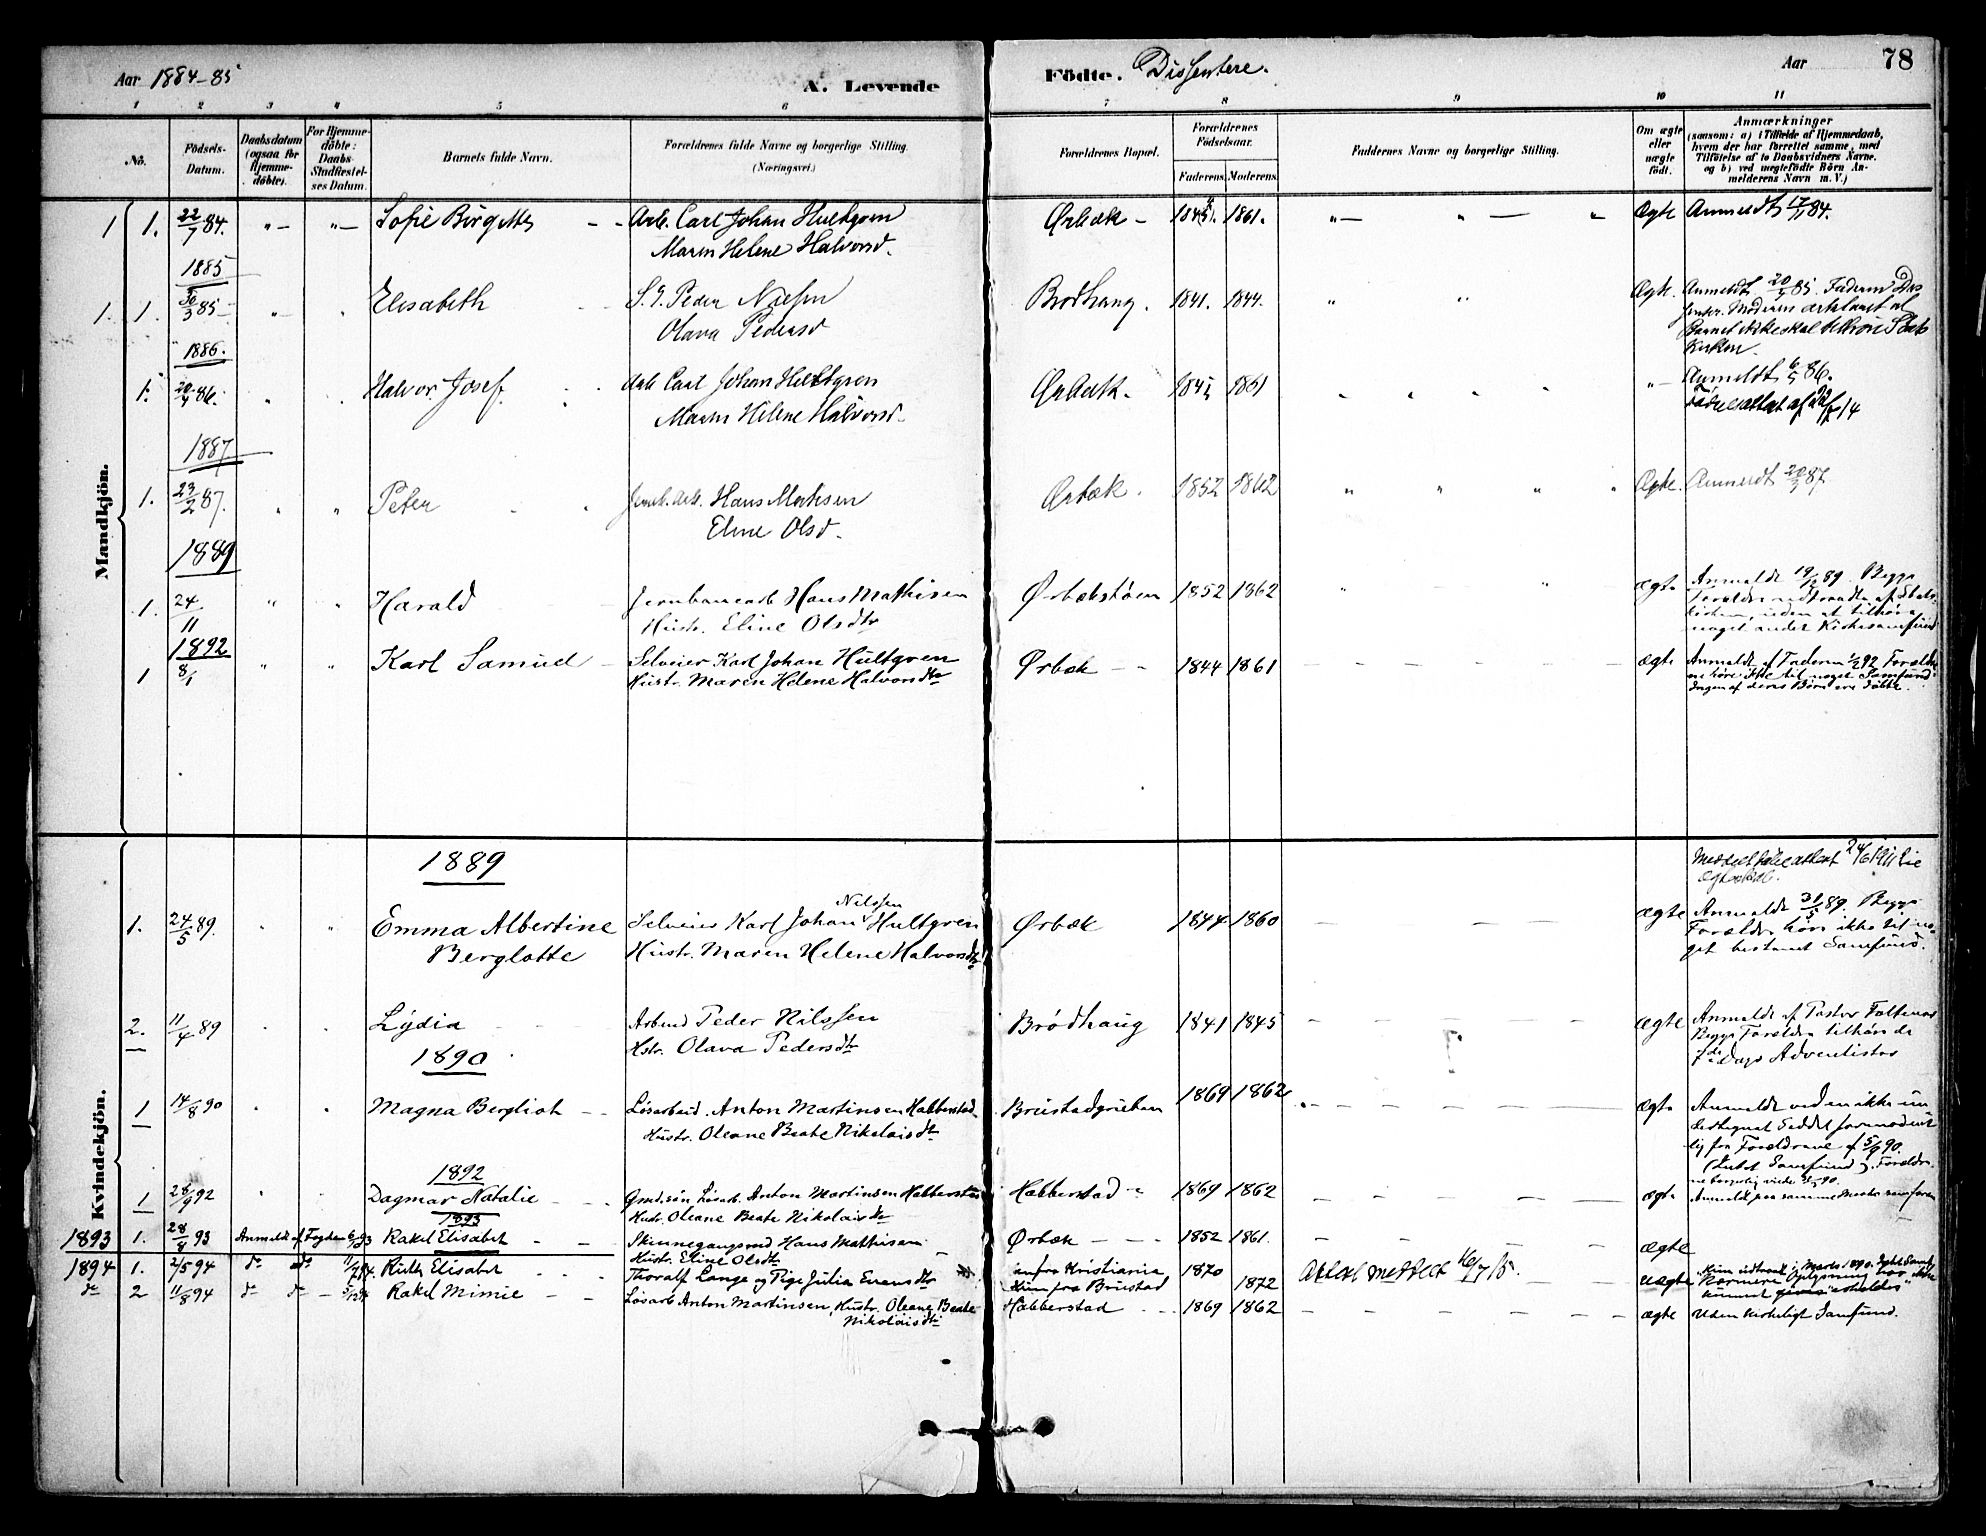 Aar 1884-85
A. Levende
Födte. Dissentere.
Aar
78
1 2 3 4 5 6 7 8 9 10 11
No.
Födsels-Datum.
Daabsdatum (ogsaa for Hjemme-döbte).
For Hjemme-döbte: Daabs-Stadfæstel-ses Datum.
Barnets fulde Navn.
Forældrenes fulde Navne og borgerlige Stilling. (Næringsvei.)
Forældrenes Bopæl.
Forældrenes Födselsaar.
Faderens. Moderens.
Faddernes Navne og borgerlige Stilling.
Om ægte eller uægte födt.
Anmærkninger
(saasom: a) i Tilfælde af Hjemmedaab, hvem der har forrettet samme, med Tilföielse af to Daabsvidners Navne, og b) ved uegtefödte Börn Anmelderens Navn m. V.)
Mandkjön.
1 1. 22/7 84. Sofie Birgitte Arb. Carl Johan Hultgren Ørbæk 1845. 1861. Ægte Anmeldt 84.
Maren Helene Halvorsd.
1885
1. 1. 30/3 85 Elisabeth Peder Nielsen Brødhaug. 1841. 1844. Ægte. Anmeldt 20/4 85. Faderen Dis
Olava Pedersd
senter. Moderen
Barnet ikke skal tilhøre Stats
Kirken.
1886.
1. 20/4 86. Halvor Josef. Arb Carl Johan Hultgren Ørbæk. 1845 1861 Anmeldt 6/5 86.
Maren Helene Halvorsd. Fødselsattest
1887.
1. 23/2 87. Peter Hans Mathisen Ørbæk. 1852 1862 Ægte. Anmeldt 87
Eline Olsd.
1889
1. 24/11 Harald Jernbanearb Hans Mathisen Ørbækstøen 1852 1862 ægte Anmeldt 19/12 89. Begge
Hustr. Eline Olsdtr Forældre udtraadte af Stats-
kirken, uden at tilhøre
noget andet Kirkesamfund
1892
1 8/1 Karl Samuel Selveier Karl Johan Hultgren Ørbæk 1844 1861 ægte Anmeldt af Faderen 1/2 92 Forældre
Hustr. Maren Helene Halvorsdtr ne høre ikke til noget Samfund.
Ingen af deres Børn ere døbte.
Kvindekjön.
1889
1. 24/5 89. Emma Albertine Selveier Karl Johan Nilssen Hultgren Ørbæk 1844 1860 ægte Anmeldt 31/5 89. Begge
Berglotte Hustr. Maren Helene Halvorsdtr Forældre høre ikke til no-
get bestemt Samfund.
2. 11/4 89 Lydia Arbmd Peder Nilssen Brødhaug 1841 1845 ægte Anmeldt af Pastor
Hstr. Olava Pedersdtr Begge Forældre tilhørende
7de Dags Adventister
1890
1 14/8 90 Magna Bergliot Løsarbeid. Anton Martinsen Habberstad 1869 1862 ægte Anmeldt ved en ikke un
Hustr. Oleane Beate Nikolaisdtr dertegnet Seddel formodent
lig fra Forældrene af 5/9 90.
1892
1 28/9 92 Dagmar Natalie Løsarb. Anton Martinsen Habberstad Habberstad 1869 1862 ægte Anmeldt paa samme Maade som foran
Hustr. Oleane Beate Nikolaisdtr
1893
1893 1. 28/4 93 Anmeldt af Fogden Rakel Elisabet Hans Mathisen Ørbæk 1852 1861. ægte
Hustr. Eline Olsdtr
1894 1. 2/5 94 do do Ruth Elisabet Thoralf Lange og Pige Julia Evensdtr fra Kristiania 1870 Attest meddelt uægte
Hun fra Brustad 1872
do 2 11/8 94 do do Rakel Mimie Løsarb Anton Martinsen, Hustr. Oleane Beate Habberstad 1869 1862 ægte Uden kirkeligt Samfund.
Nikolaisdtr